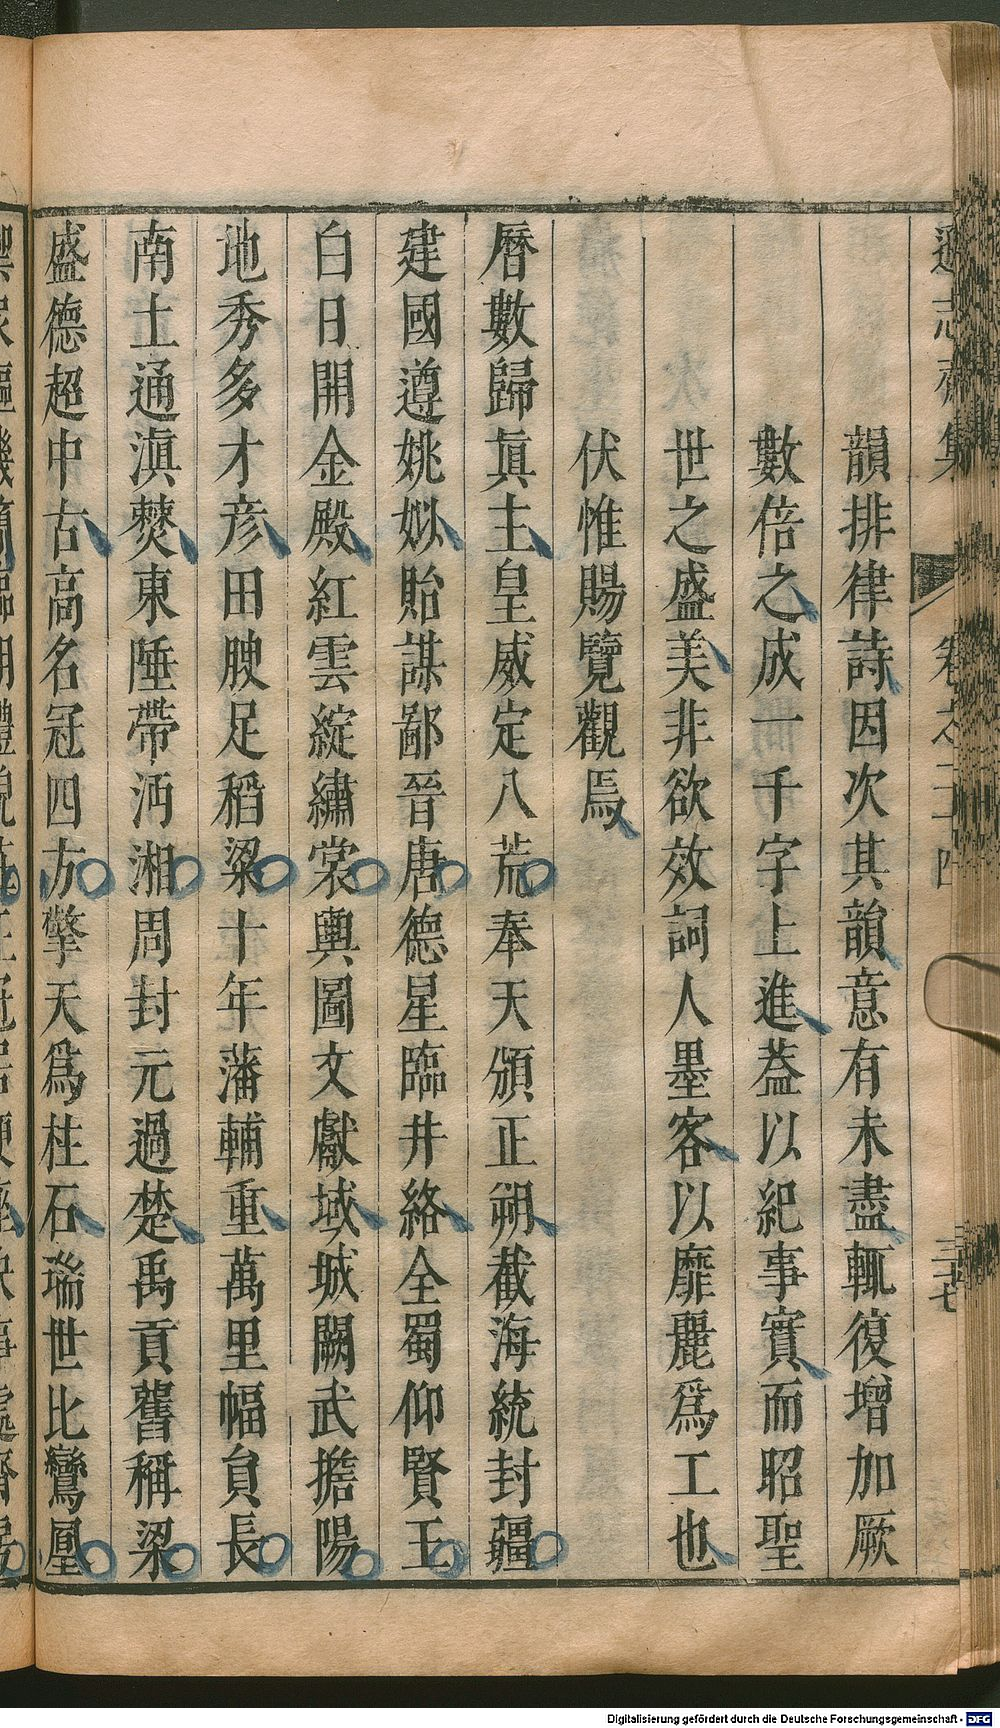 韻排律詩因次其韻意有未盡輒復增加厥
數倍之成一千字上進葢以紀事實而昭聖
世之盛美非欲效詞人墨客以靡麗爲工也
伏惟賜覽觀焉
曆數歸眞主皇威定八荒奉天頒正朔截海統封疆
建國遵姚姒貽謀鄙晉唐德星臨井絡全蜀仰賢王
白日開金殿紅雲綻繡裳輿圖文獻域城闕武擔陽
地秀多才彦田腴足稻粱十年藩輔重萬里幅貟長
南土通滇僰東陲帶沔湘周封元過楚禹貢舊稱梁
盛德超中古高名冠四方擎天爲柱石瑞世比鸞凰
Digitalisierung gefördert durch die Deutsche Forschungsgemeinschaft - DFG